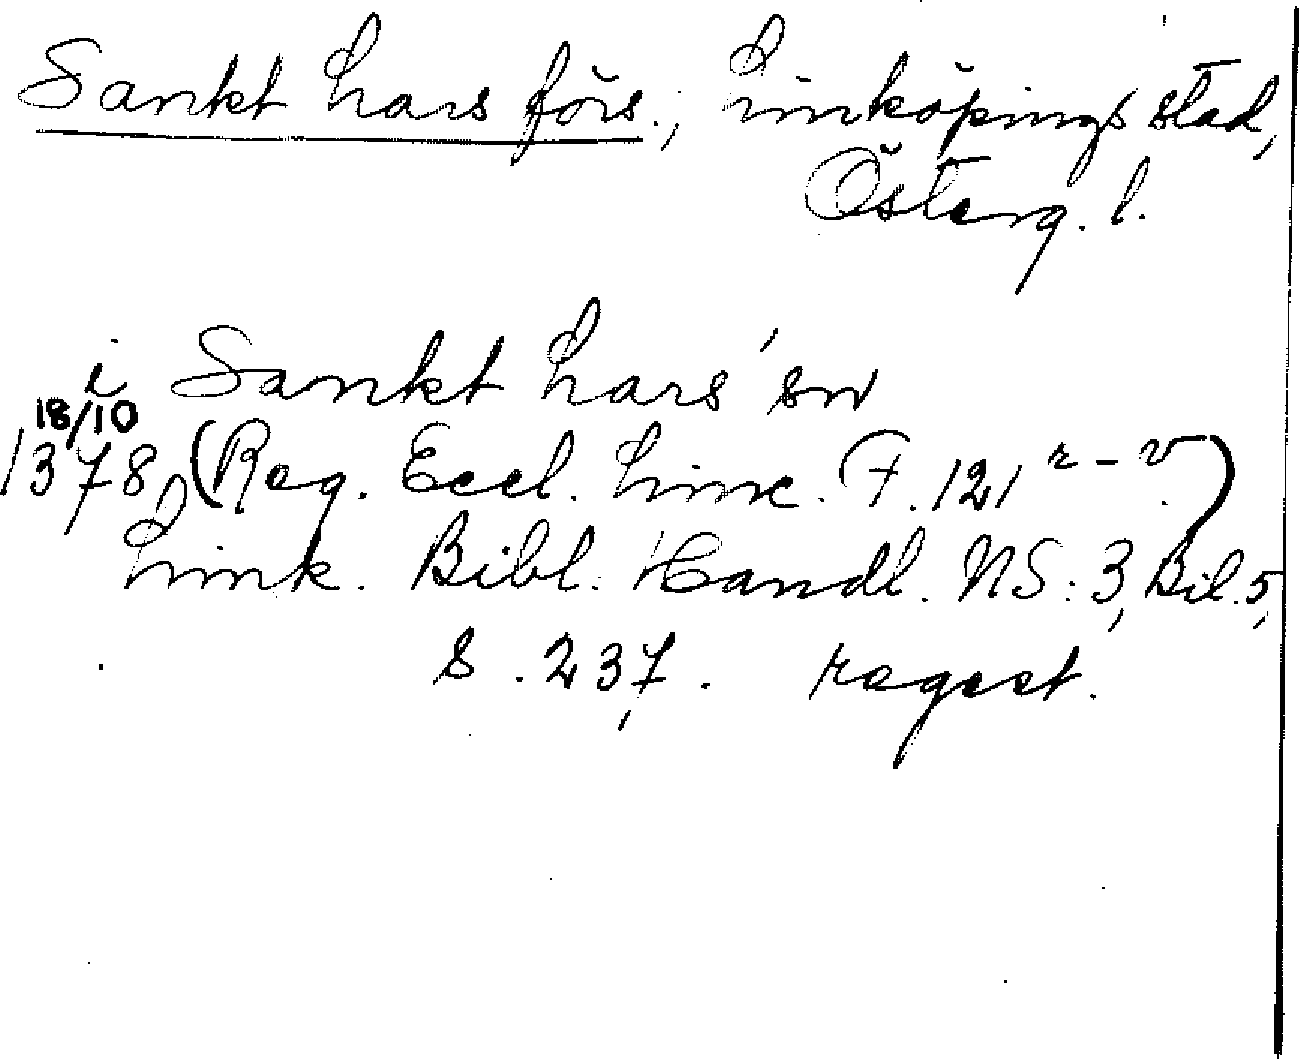 Sankt Lars förs., Linköpings stad,
Österg. l.
i Sankt Lars' sn
18/10
1378 (Reg. Eccl. Linc. F. 121 r-v)
Link. Bibl. Handl. NS: 3, Bil. 5,
s. 237. regest.